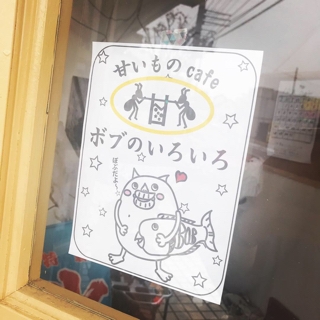 甘いもの cafe
甘
ボブのいろいろ
ぼぶだよ〜☆